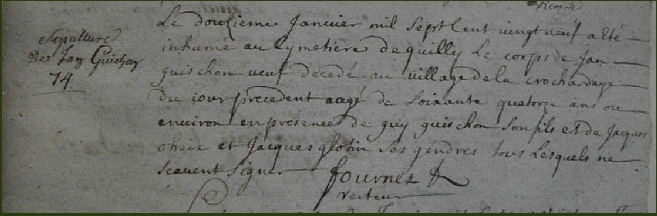 Sepulture
De Jan Guischon
74
Le douzieme Janvier mil sept cent vingt neuf a été
inhumé au cymetière de quilly Le corps de Jan
guischon veuf decedé au village de la crochardays
du jour precedent aagé de soixante quatorze ans ou
environ en presence de guy guischon son fils et de Jacques
et Jacques glotin Ses gendres tous Lesquels ne
scavent signer fournet
recteur